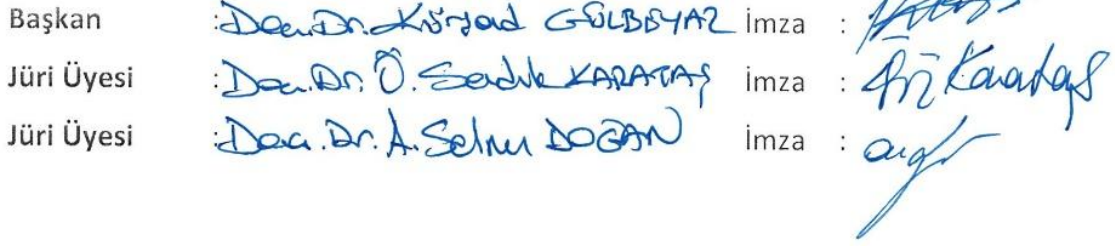 Başkan :Doç.Dr. Kürşad GÜLBEYAZ İmza :
Jüri Üyesi :Doç.Dr. Ö. Sadık KARATAŞ İmza : Karataş
Jüri Üyesi :Doç.Dr. A. Selru DOĞAN İmza :